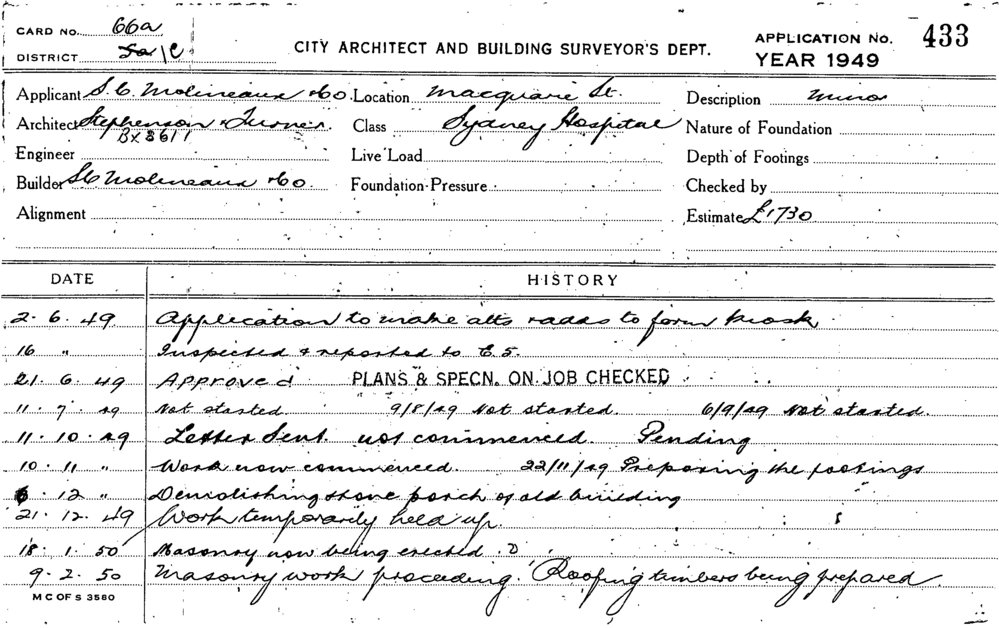 CARD NO. 66a
DISTRICT /C
CITY ARCHITECT AND BUILDING SURVEYOR'S DEPT.
APPLICATION No. 433
YEAR 1949
Applicant S.C. Molineaux & Co. Location Macquarie St. Description Minor
Architect Stephenson & Turner. Class Sydney Hospital Nature of Foundation
BX 8611
Engineer Live Load Depth of Footings
Builder SC Molineaux & Co. Foundation Pressure Checked by
Alignment Estimate £1730
DATE HISTORY
2. 6. 49 Application to make alts & adds to form kiosk
16 " Inspected & reported to E.S.
21. 6. 49 Approved PLANS & SPECN. ON JOB CHECKED
11. 7. 49 Not started. 9/8/49 Not started. 6/9/49 Not started.
11. 10. 49 Letter Sent. not commenced. Pending
10. 11 " Work now commenced. 22/11/49 Preparing the footings
6. 12 " Demolishing stone porch of old building
21. 12. 49 Work temporarily held up.
18. 1. 50 Masonry now being erected.
9. 2. 50 Masonry work proceeding. Roofing timbers being prepared.
M C OF S 3580